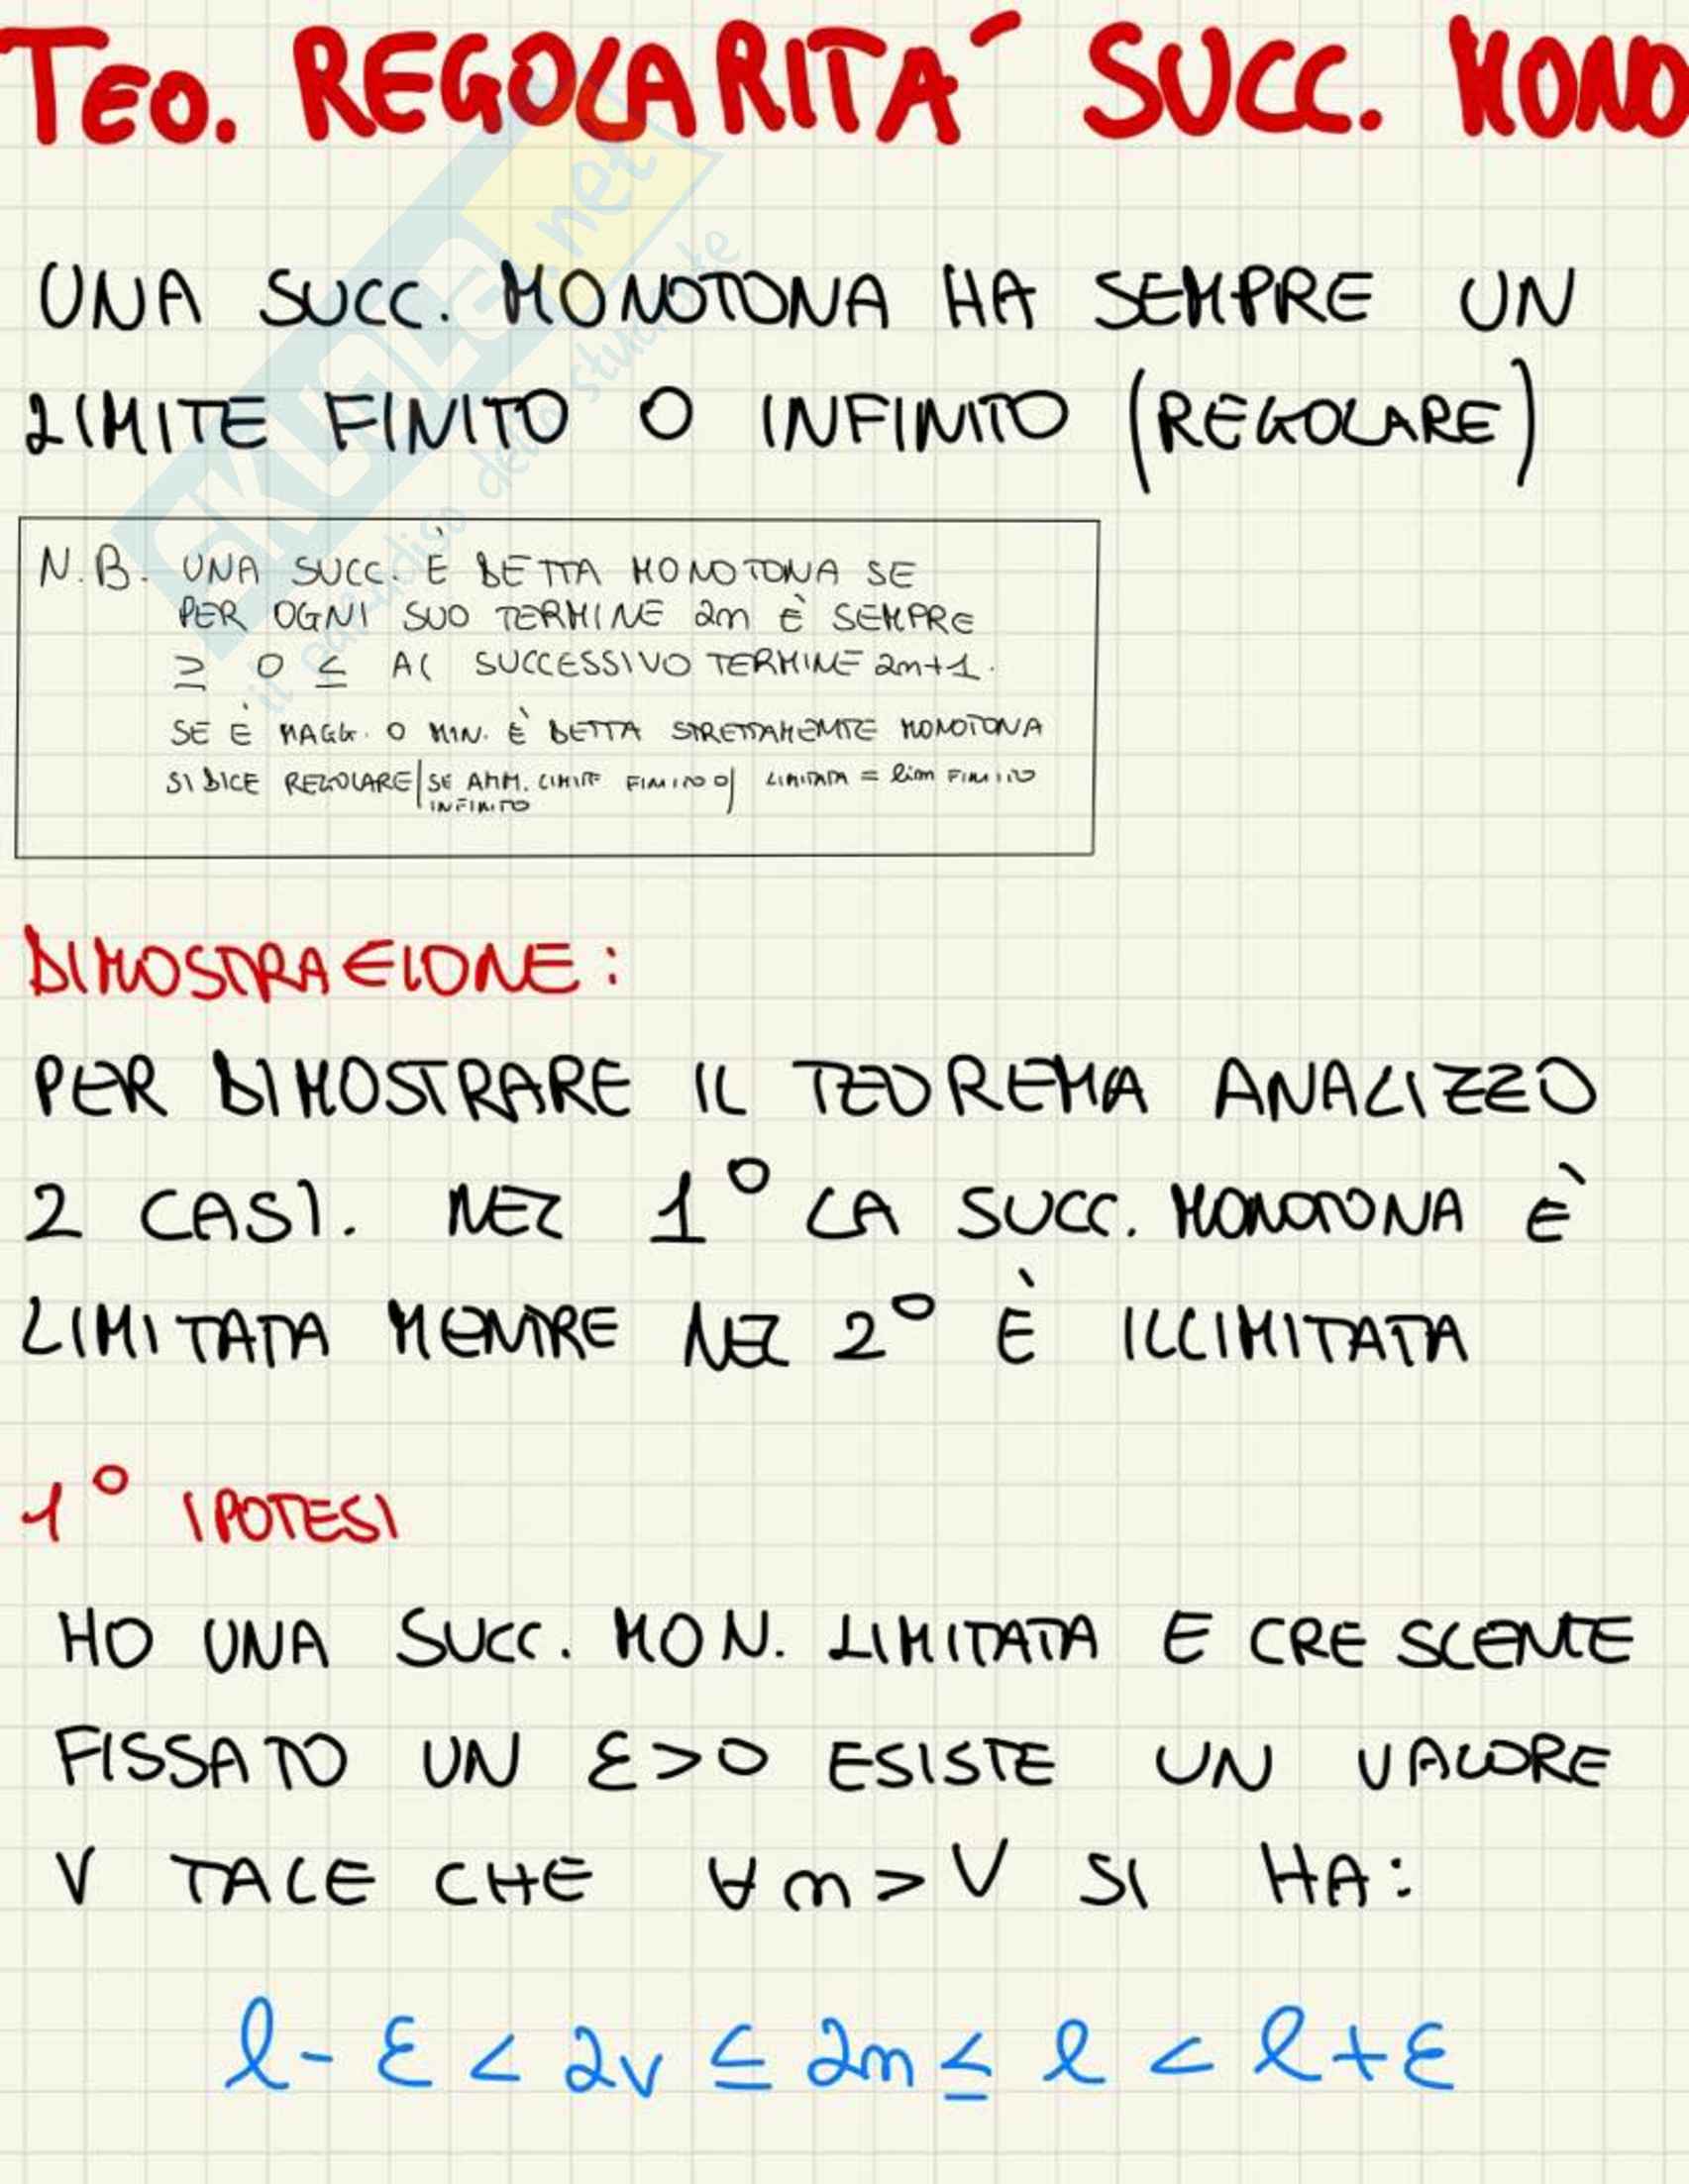 TEO. REGOLARITA´ SUCC. MONO
UNA SUCC. MONOTONA HA SEMPRE UN
LIMITE FINITO O INFINITO (REGOLARE)
N.B. UNA SUCC. È DETTA MONOTONA SE
PER OGNI SUO TERMINE an È SEMPRE
≥ O ≤ AL SUCCESSIVO TERMINE an+1.
SE È MAGG. O MIN. È DETTA STRETTAMENTE MONOTONA
SI DICE REGOLARE|SE AMM. LIMITE FINITO O| LIMITATA = lim FINITO
INFINITO
DIMOSTRAZIONE:
PER DIMOSTRARE IL TEOREMA ANALIZZO
2 CASI. NEL 1° LA SUCC. MONOTONA È
LIMITATA MENTRE NEL 2° È ILLIMITATA
1° IPOTESI
HO UNA SUCC. MON. LIMITATA E CRESCENTE
FISSATO UN ε>0 ESISTE UN VALORE
V TALE CHE ∀n>V SI HA:
l-ε < av ≤ an ≤ l < l+ε
SKUOLA.net
il paradiso dello studente